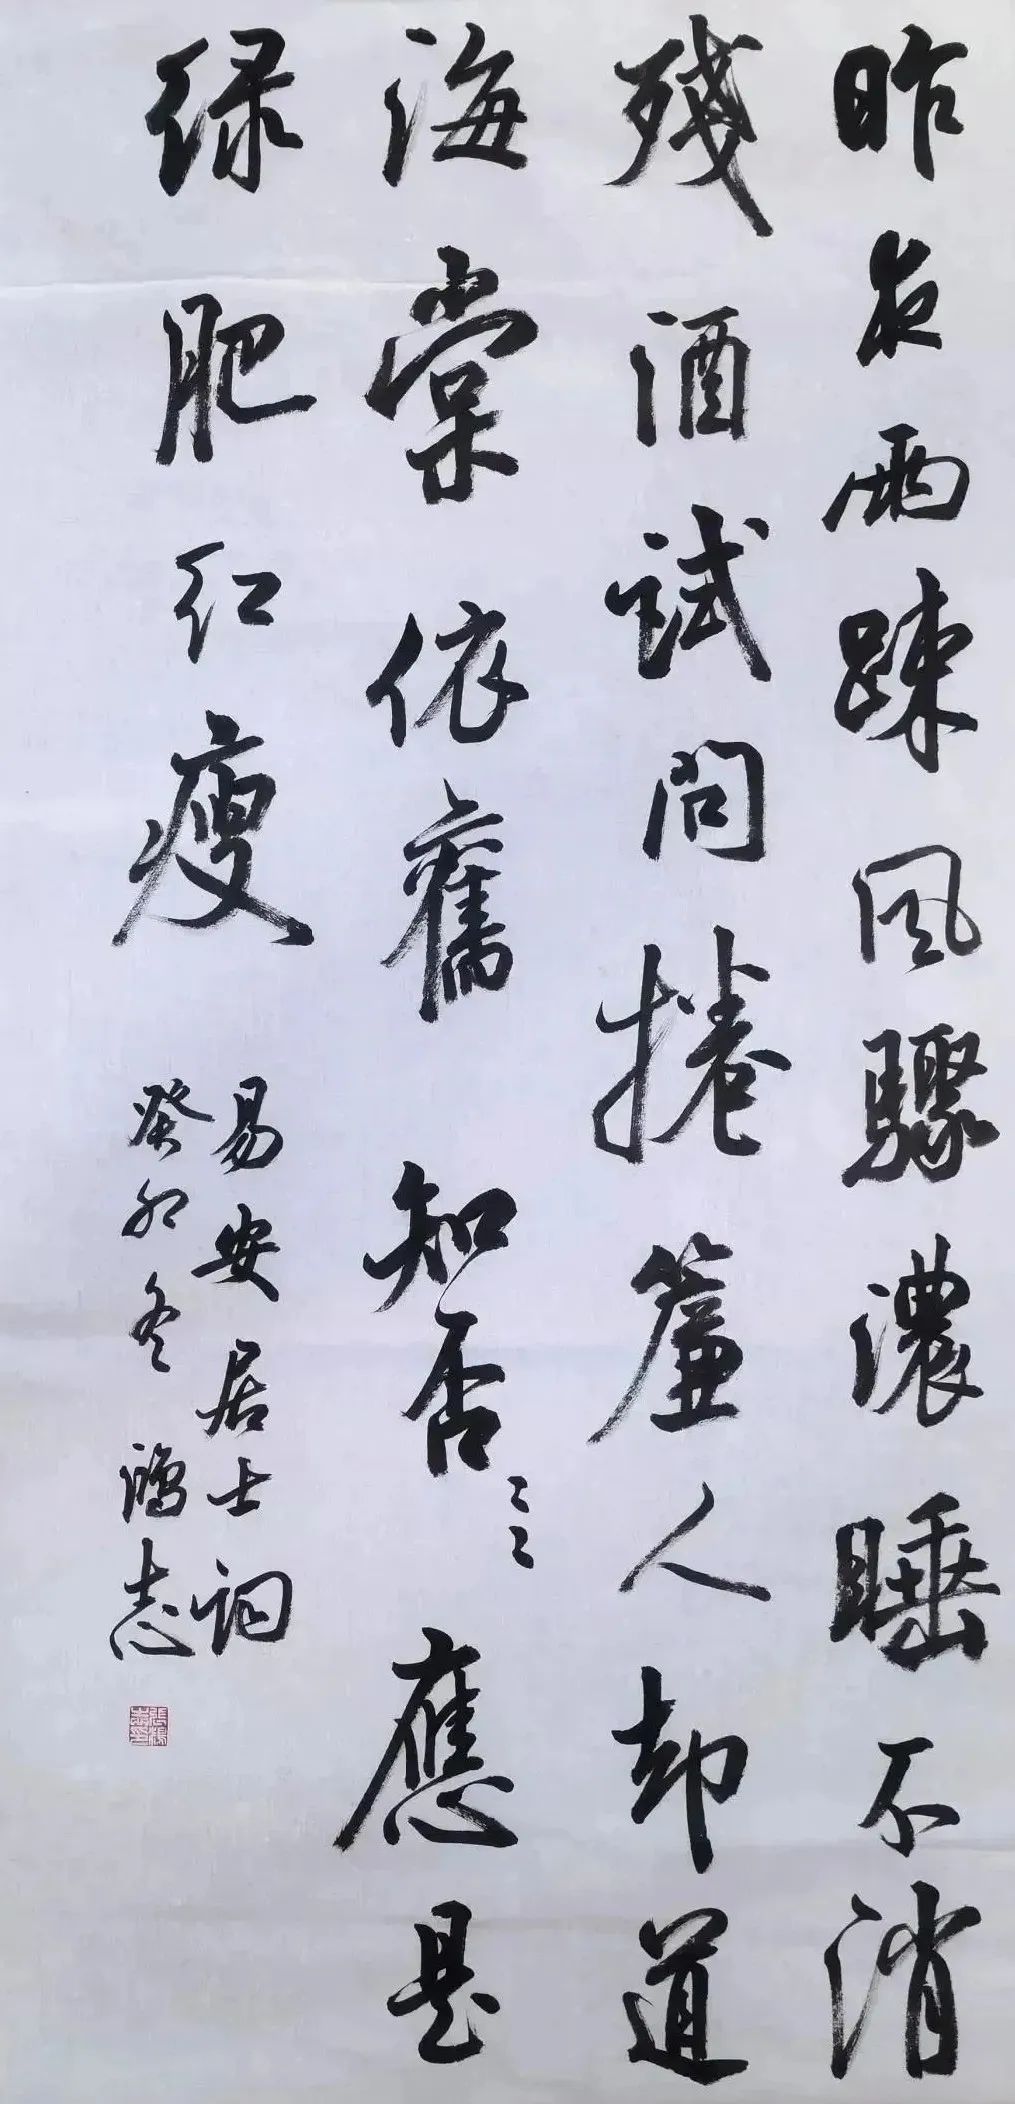 昨夜雨踈风驟濃睡不消
殘酒試问捲簾人却道
海棠依舊知否〻〻應是
绿肥红瘦
易安居士词
癸卯冬鴻志